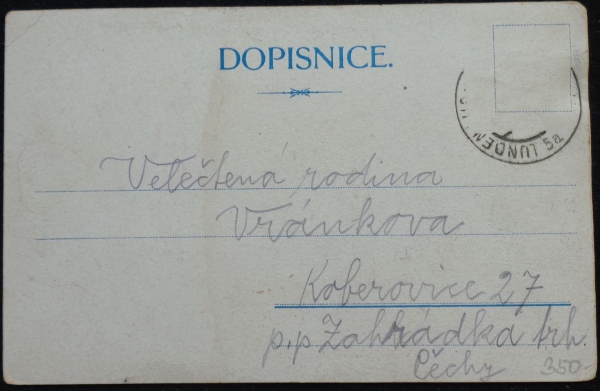 DOPISNICE.
LUNDEN 5a
Velectěná rodina
Vránkova
Koberovice 27
p.p Zahrádka trh.
Čechy 350-